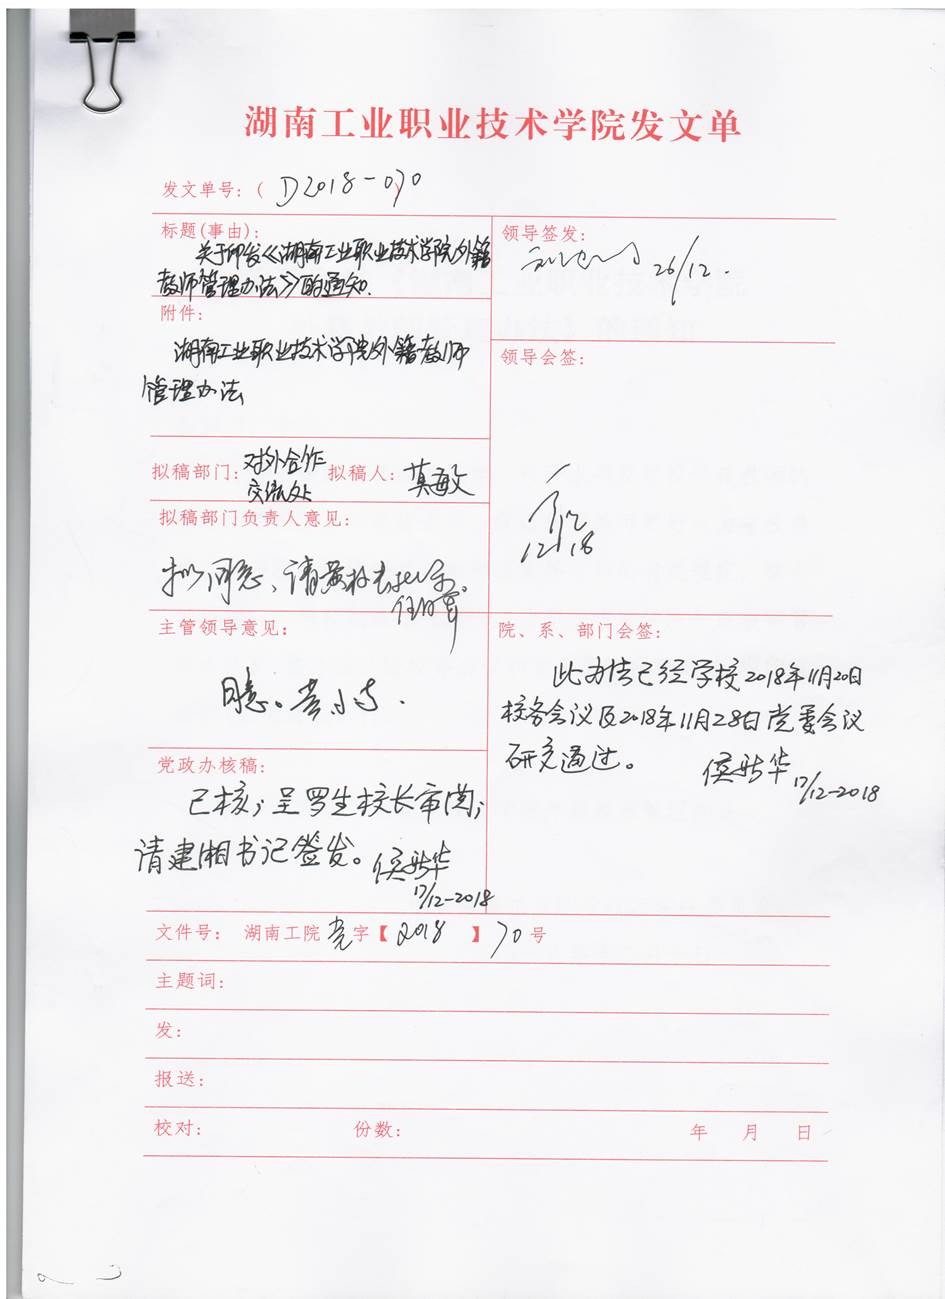 湖南工业职业技术学院发文单
发文单号：( D2018-070
标题(事由)：
关于印发《湖南工业职业技术学院外籍
教师管理办法》的通知.
领导签发：
26/12.
附件：
湖南工业职业技术学院外籍教师
管理办法
领导会签：
12/18
拟稿部门：对外合作
交流处
拟稿人：莫敏
拟稿部门负责人意见：
拟同意、请黄校长批示。
主管领导意见：
同意。黄
院、系、部门会签：
此办法已经学校2018年11月20日
校务会议及2018年11月28日党委会议
研究通过。
17/12-2018
党政办核稿：
已核；呈罗生校长审阅；
请建湘书记签发。
17/12-2018
文件号： 湖南工院党字【2018 】70号
主题词：
发：
报送：
校对： 份数： 年 月 日